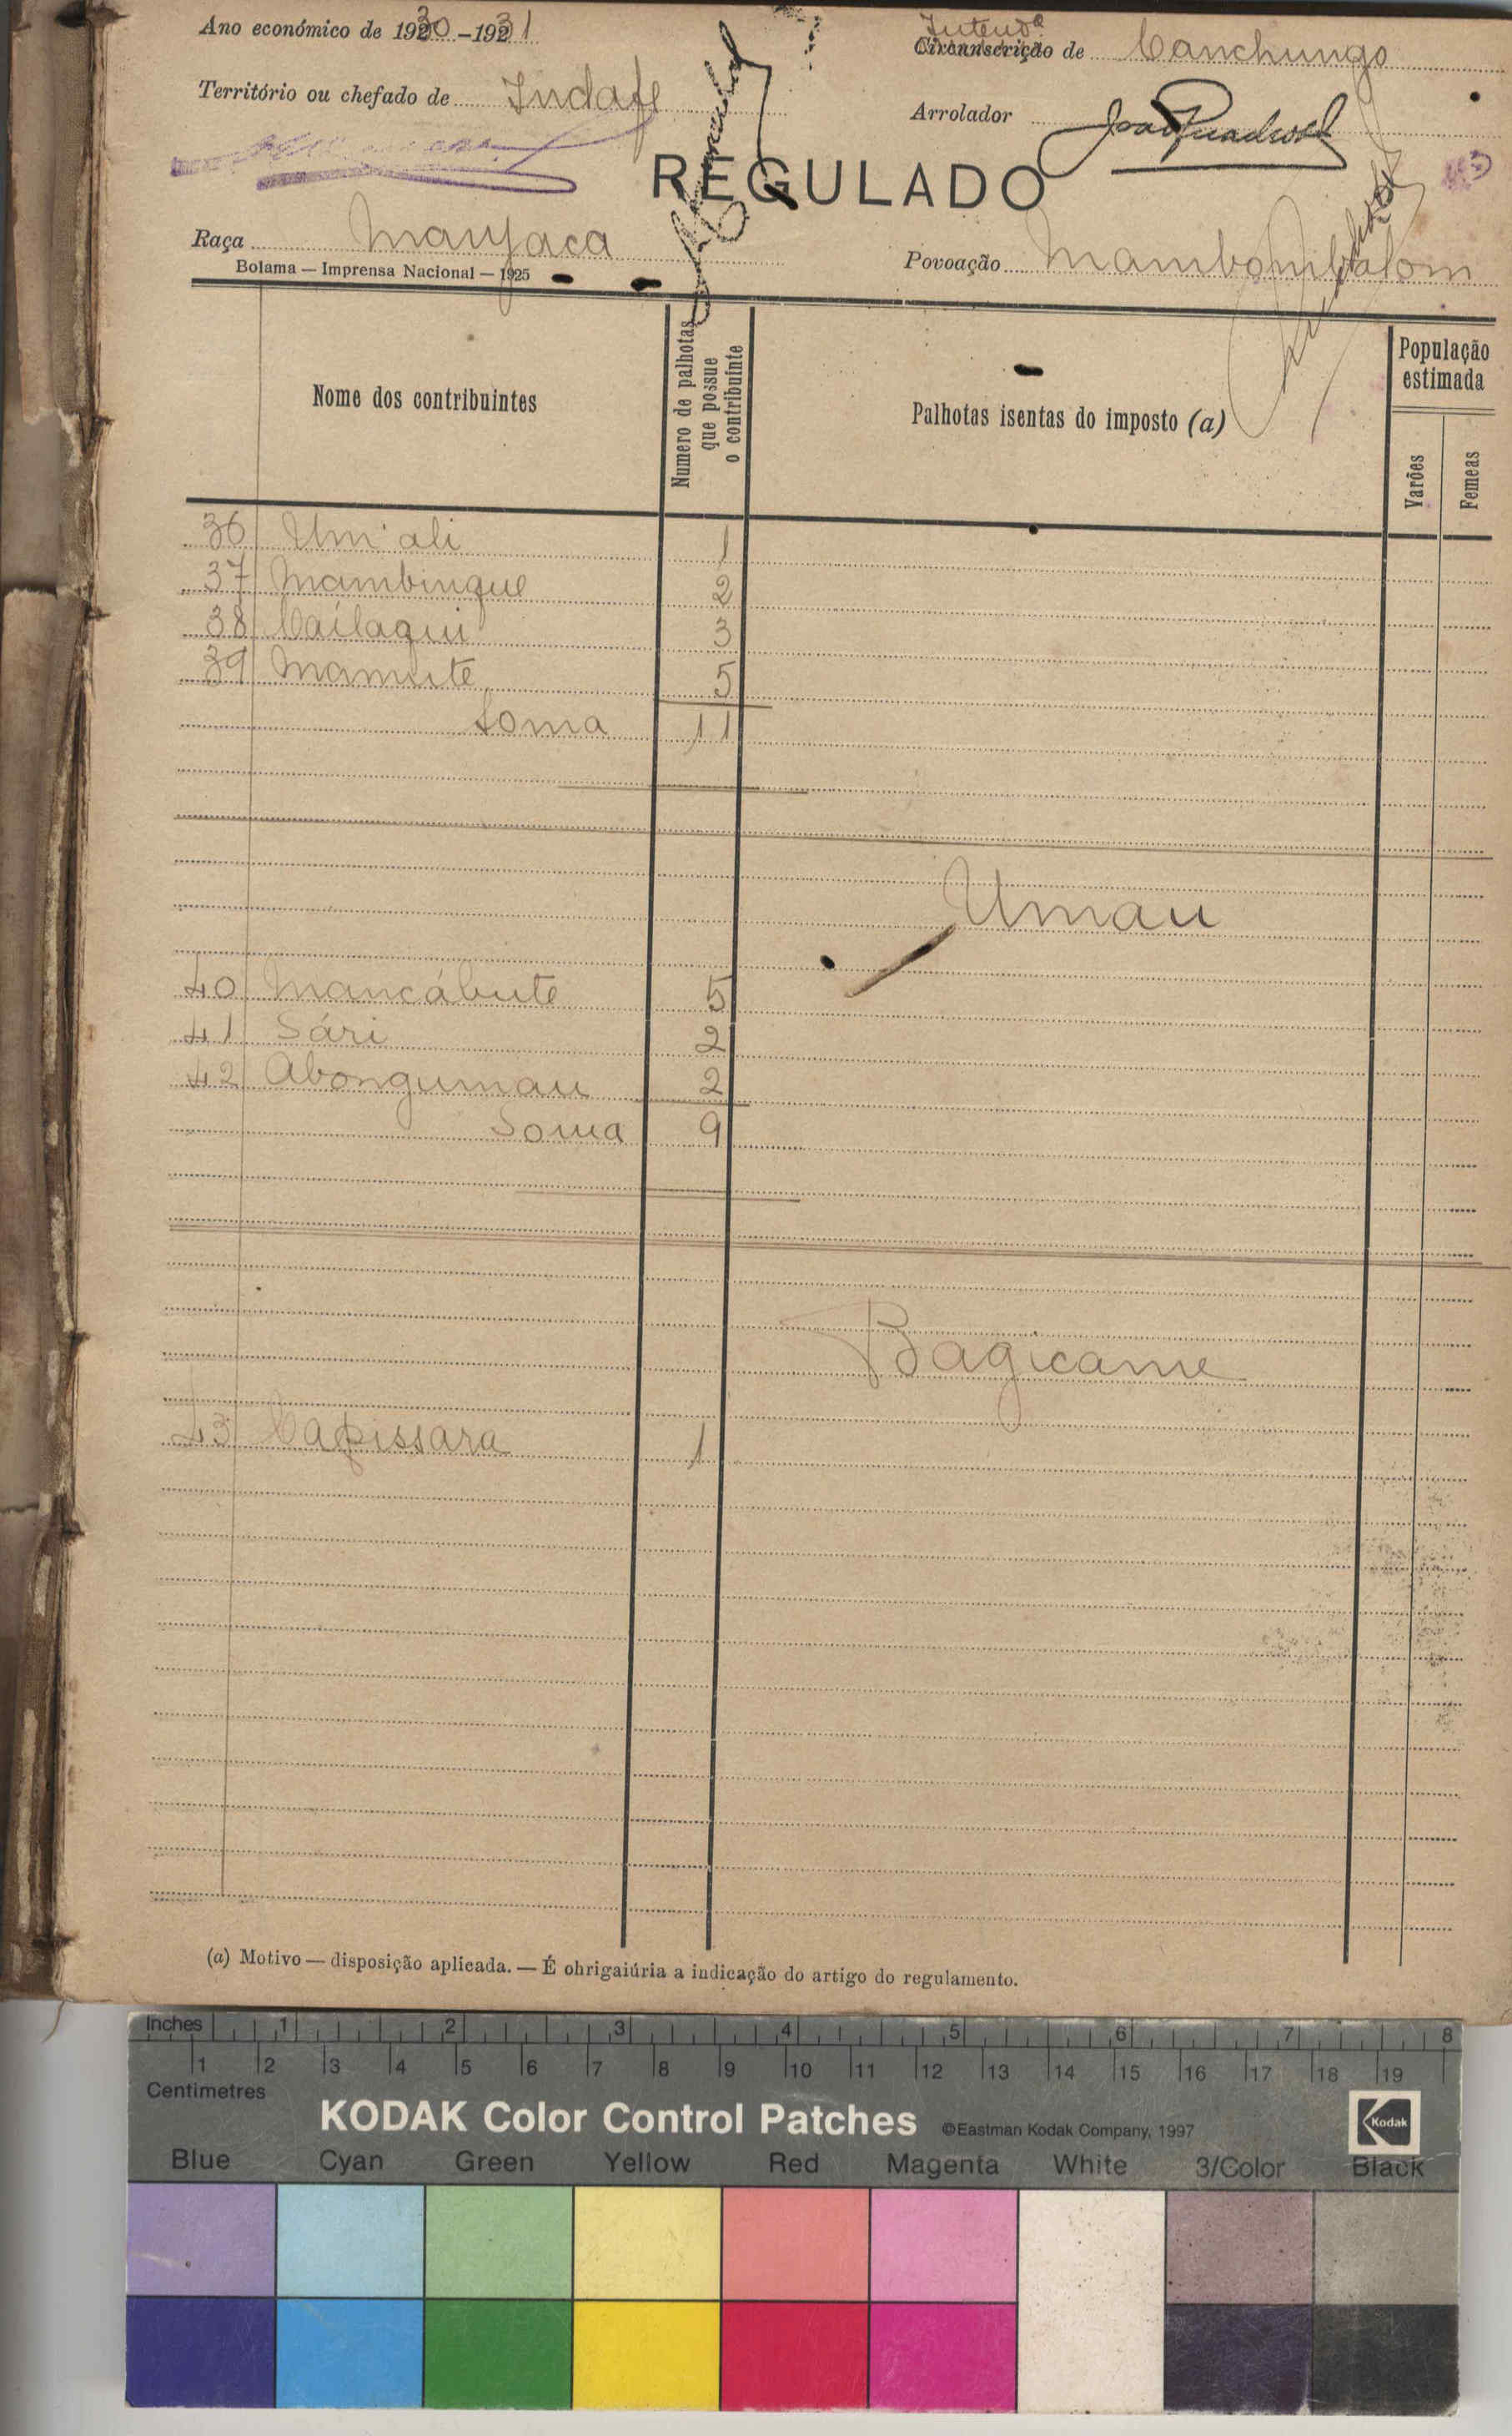 Ano económico de 1930-1931
Intend.ª
Circunscrição de Canchungo
Território ou chefado de Indafe
Arrolador
REGULADO
Raça Manjaca
Povoação
Bolama — Imprensa Nacional — 1925
Nome dos contribuintes
Numero de palhotas que possue o contribuinte
Palhotas isentas do imposto (a)
População estimada
Varões
Femeas
36 Um'ali 1
37 Mambinque 2
38 Caílaqui 3
39 Mamute 5
Soma 11
Umau
40 Mancábute 5
41 Sári 2
42 Abongumau 2
Soma 9
Bagicame
43 Capissara 1
(a) Motivo — disposição aplicada. — É ohrigaiúria a indicação do artigo do regulamento.
Inches 1 2 3 4 5 6 7 8
1 2 3 4 5 6 7 8 9 10 11 12 13 14 15 16 17 18 19
Centimetres
KODAK Color Control Patches ©Eastman Kodak Company, 1997
Kodak
Blue Cyan Green Yellow Red Magenta White 3/Color Black